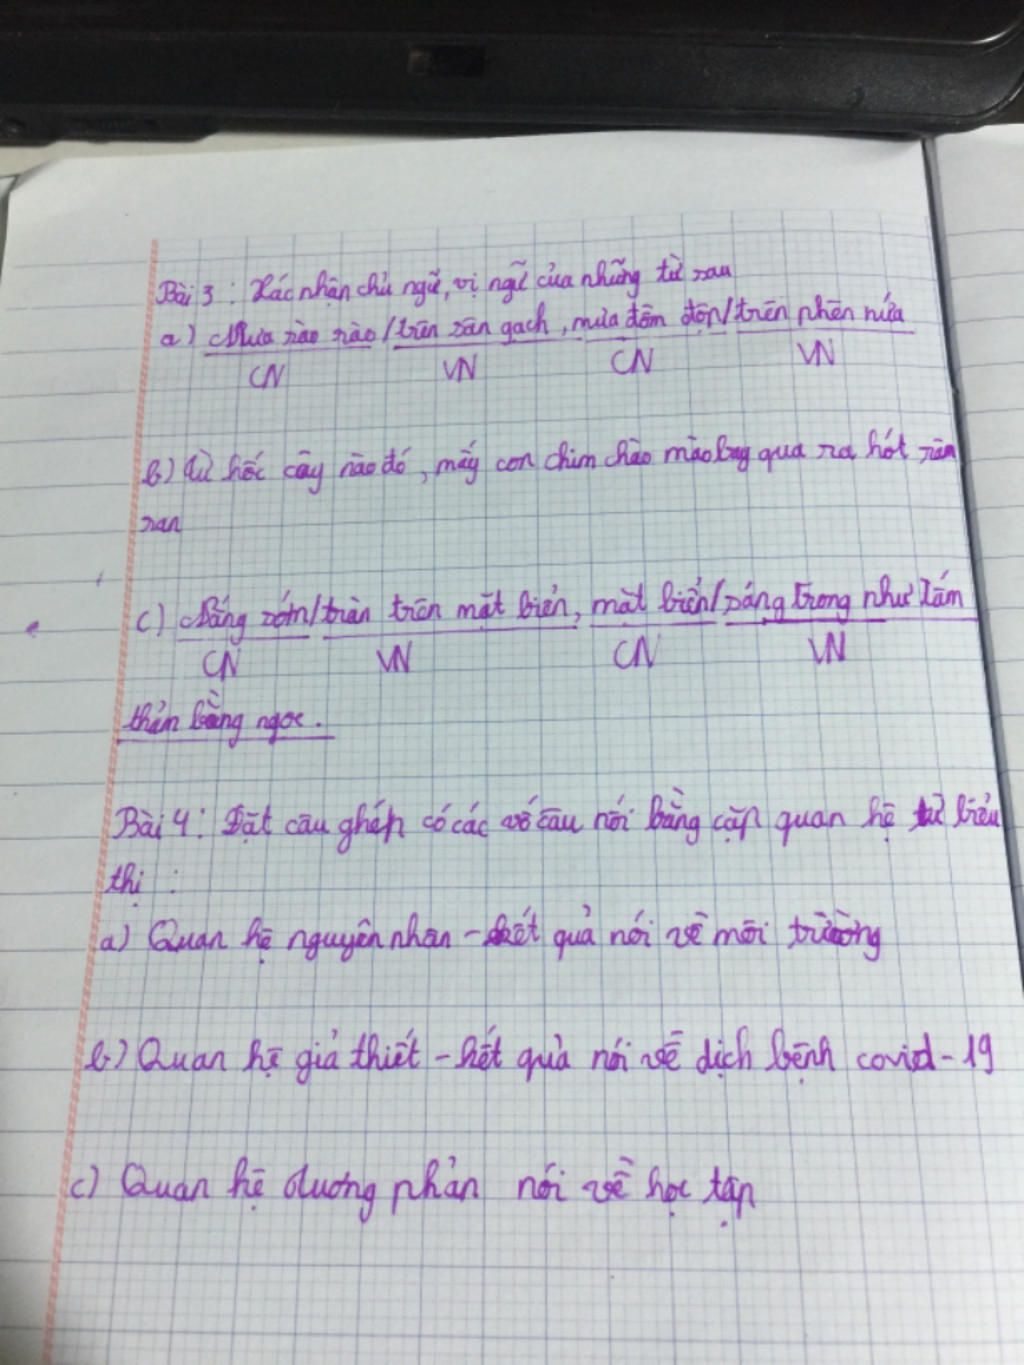 Bài 3 : Xác nhận chủ ngữ, vị ngữ của những từ sau
a) Mưa rào rào / trên sân gạch, mưa đồm độp / trên phên nứa
CN VN CN VN
b) Từ hốc cây nào đó, mấy con chim chào mào bay qua ra hót râm
ran
c) Nắng sớm / tràn trên mặt biển, mặt biển / sáng trong như tấm
CN VN CN VN
thảm bằng ngọc.
Bài 4 : Đặt câu ghép có các vế câu nối bằng cặp quan hệ từ biểu
thị :
a) Quan hệ nguyên nhân - kết quả nói về môi trường
b) Quan hệ giả thiết - kết quả nói về dịch bệnh covid - 19
c) Quan hệ tương phản nói về học tập